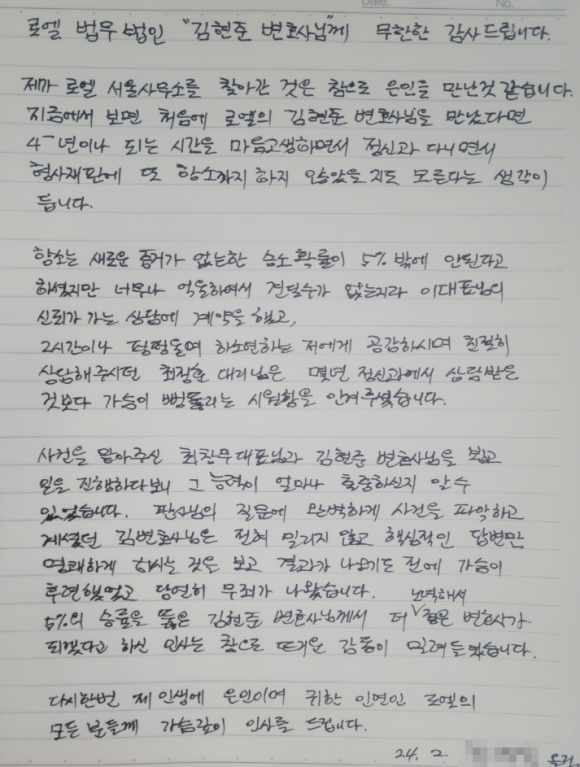 Date.
No.
로엘 법무법인 "김현준 변호사님"께 무한한 감사드립니다.
제가 로엘 서울사무소를 찾아간 것은 참으로 은인을 만난것 같습니다.
지금에서 보면 처음에 로엘의 김현준 변호사님을 만났다면
4~년이나 되는 시간을 마음고생하면서 정신과 다니면서
형사재판에 또 항소까지 하지 않았을지도 모른다는 생각이
듭니다.
항소는 새로운 증거가 없는한 승소확률이 5% 밖에 안된다고
하셨지만 너무나 억울하여서 견딜수가 없는지라 이대표님의
신뢰가 가는 상담에 계약을 했고,
2시간이나 펑펑울며 하소연하는 저에게 공감하시며 친절히
상담해주시던 최정훈 대리님은 몇년 정신과에서 상담받은
것보다 가슴이 뻥뚫리는 시원함을 안겨주셨습니다.
사건을 맡아주신 최창무대표님과 김현준 변호사님을 뵙고
일을 진행하다보니 그 능력이 얼마나 출중하신지 알 수
있었습니다. 판사님의 질문에 완벽하게 사건을 파악하고
계셨던 김변호사님은 전혀 밀리지 않고 핵심적인 답변만
명쾌하게 하시는 것을 보고 결과가 나오기도 전에 가슴이
후련했었고 당연히 무죄가 나왔습니다.
5%의 승률을 뚫은 김현준 변호사님께서 더 노력해서 좋은 변호사가
되겠다고 하신 인사는 참으로 뜨거운 감동이 밀려들었습니다.
다시한번 제 인생에 은인이며 귀한 인연인 로엘의
모든 분들께 가슴깊이 인사를 드립니다.
24. 2.